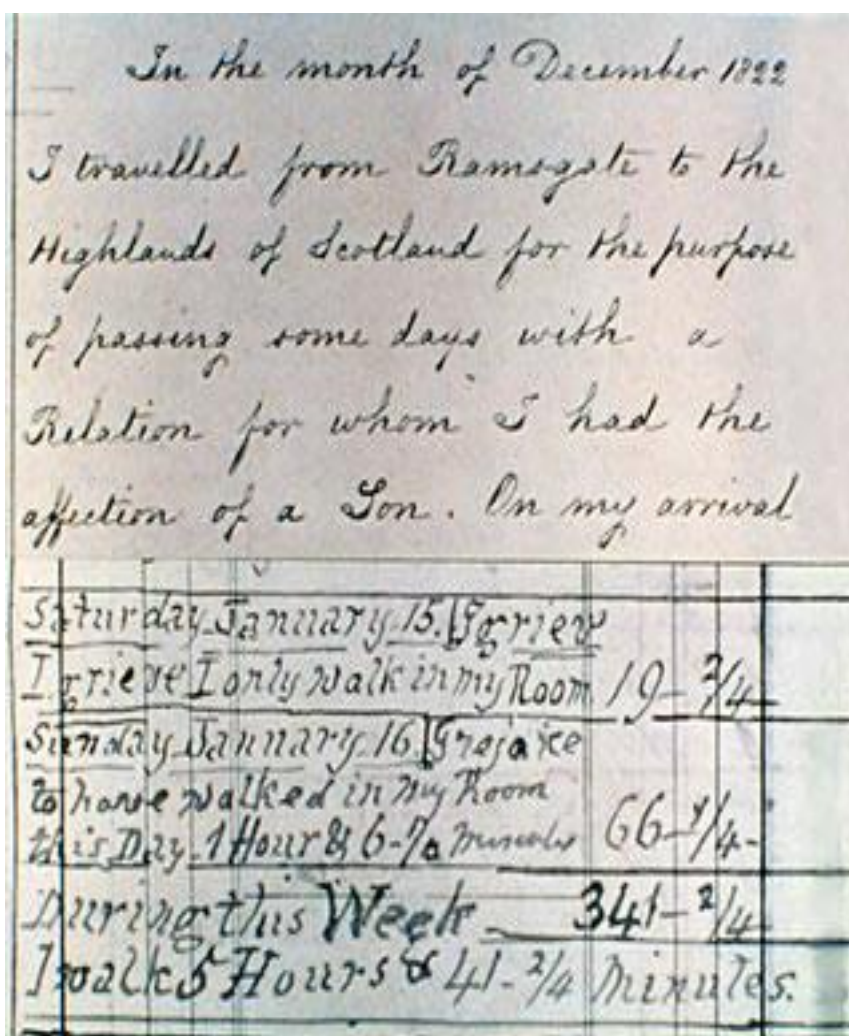 In the month of December 1822
I travelled from Ramsgate to the
Highlands of Scotland for the purpose
of passing some days with a
Relation for whom I had the
affection of a Son. On my arrival
Saturday January 15.
I grieve I only walk in my Room 19-2/4
Sunday January 16
to have walked in my Room
this Day 1 Hour & 6- Minutes 66-1/4-
During this Week 341-2/4
I walk 5 Hours & 41-2/4 Minutes.